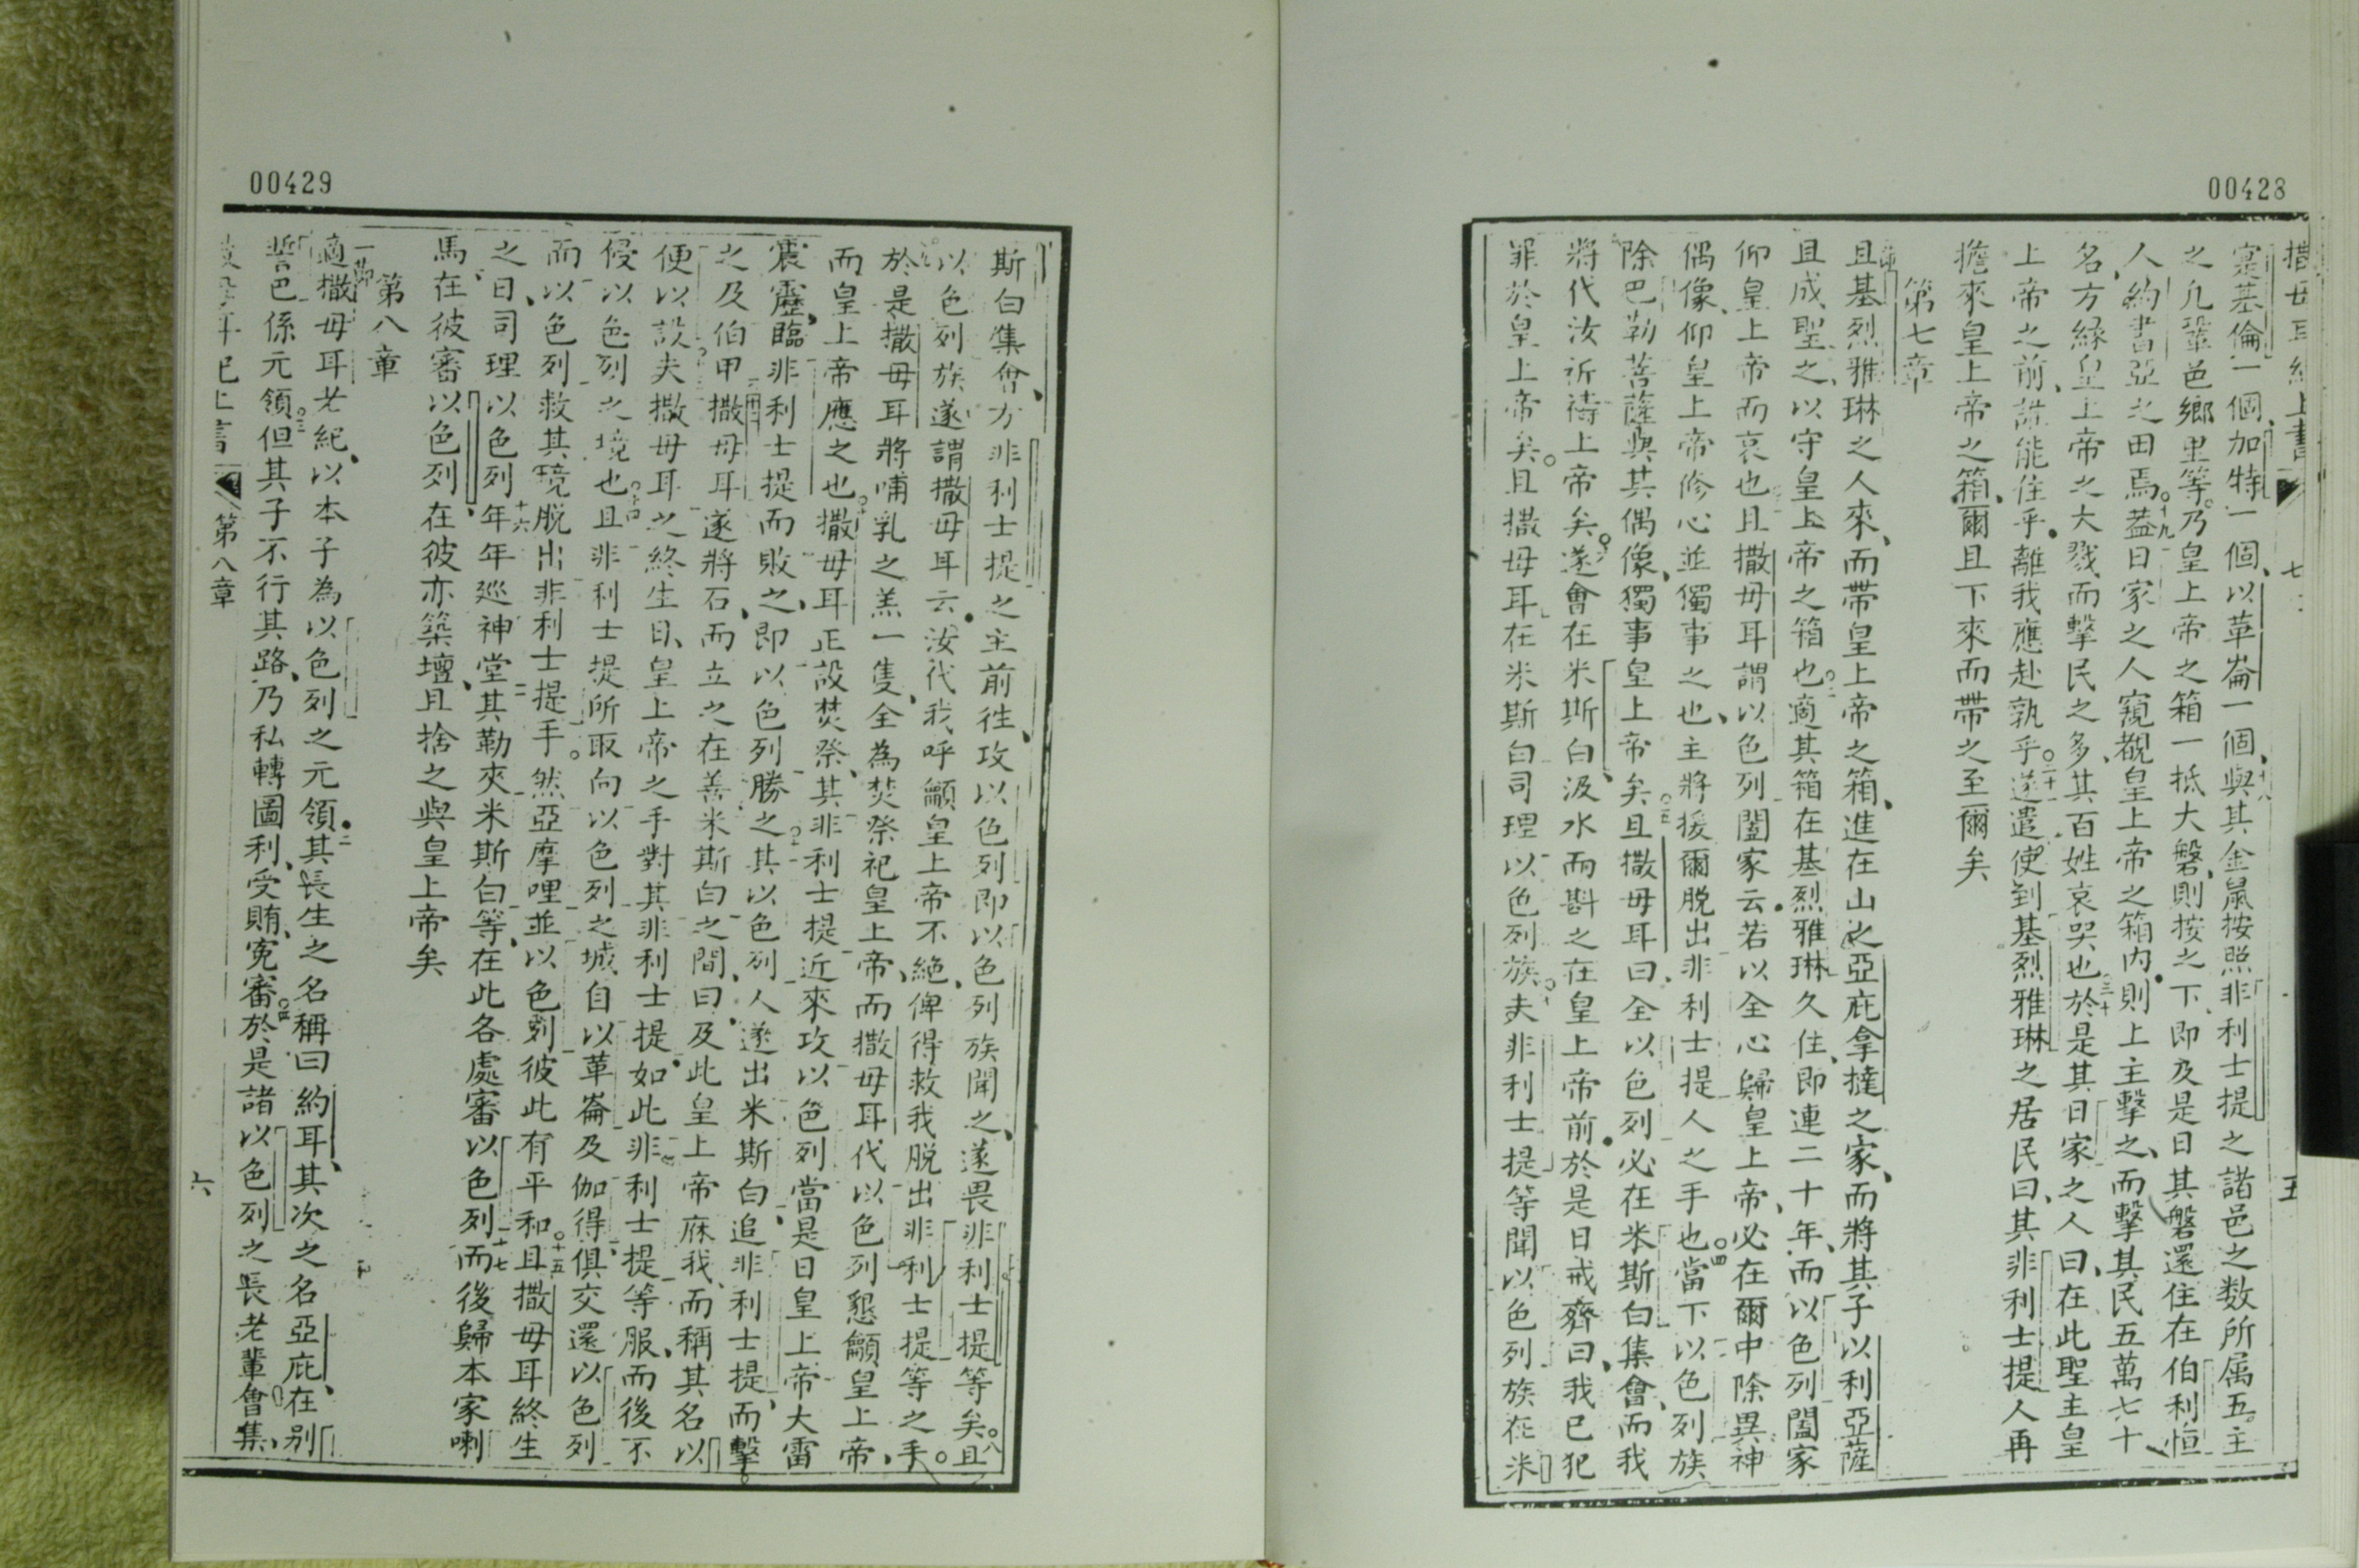 00428
撒母耳紀上書
五
寔基倫一個、加特一個、以革崙一個、十八與其金鼠按照非利士提之諸邑之数所属五主
之凡鞏邑鄉里等、乃皇上帝之箱一抵大磐、則按之下、即及是日其磐還住在伯利恒
人約書亞之田焉。十九葢日家之人窺覩皇上帝之箱内、則上主擊之、而擊其民五萬七十
名、方緣皇上帝之大戮而擊民之多、其百姓哀哭也。於是其日家之人曰、在此聖主皇
上帝之前、誰能住乎、離我應赴孰乎。遂遣使到基烈雅琳之居民曰、其非利士提人再
擔來皇上帝之箱、爾且下來而帶之至爾矣
第七章
且基烈雅琳之人來、而帶皇上帝之箱、進在山之亞庇拿撻之家、而將其子以利亞薩
且成聖之、以守皇上帝之箱也。適其箱在基烈雅琳久住、即連二十年、而以色列闔家
仰皇上帝而哀也。且撒毋耳謂以色列闔家云、若以全心歸皇上帝、必在爾中除異神
偶像、仰皇上帝修心並獨事之也、主將援爾脱出非利士提人之手也。四當下以色列族
除巴勒菩薩與其偶像、獨事皇上帝矣。五且撒毋耳曰、全以色列必在米斯白集會、而我
將代汝祈禱上帝矣。遂會在米斯白、汲水而斟之在皇上帝前、於是日戒齊曰、我已犯
罪於皇上帝矣。且撒毋耳在米斯白司理以色列族。夫非利士提等聞以色列族在米
00429
斯白集會、方非利士提之主前徃攻以色列、即以色列族聞之、遂畏非利士提等矣。八且
以色列族遂謂撒毋耳云、汝代我呼籲皇上帝不絶、俾得救我脱出非利士提等之手。
於是撒毋耳將哺乳之羔一隻、全為焚祭祀皇上帝、而撒毋耳代以色列懇籲皇上帝、
而皇上帝應之也。十撒毋耳正設焚祭、其非利士提近來攻以色列、當是日皇上帝大雷
震靂、臨非利士提而敗之、即以色列勝之。其以色列人遂出米斯白、追非利士提、而擊
之及伯甲。撒毋耳遂將石、而立之在善米斯白之間、曰、及此皇上帝庥我、而稱其名以
便以設夫。撒毋耳之終生日、皇上帝之手對其非利士提、如此非利士提等服、而後不
侵以色列之境也。十四且非利士提所取向以色列之城、自以革崙及伽得俱交還以色列
而以色列救其境脱出非利士提手。然亞摩哩並以色列彼此有平和。十五且撒毋耳終生
之日、司理以色列。十六年年巡神堂、其勒夾、米斯白等、在此各處審以色列。十七而後歸本家喇
馬、在彼審以色列、在彼亦築壇、且捨之與皇上帝矣
第八章
一節適撒毋耳老紀、以本子為以色列之元領。二其長生之名稱曰約耳、其次之名亞庇、在别
誓巴係元領。三但其子不行其路、乃私轉圖利、受賄、寃審。四於是諸以色列之長老輩會集、
耳紀上書
第八章
六